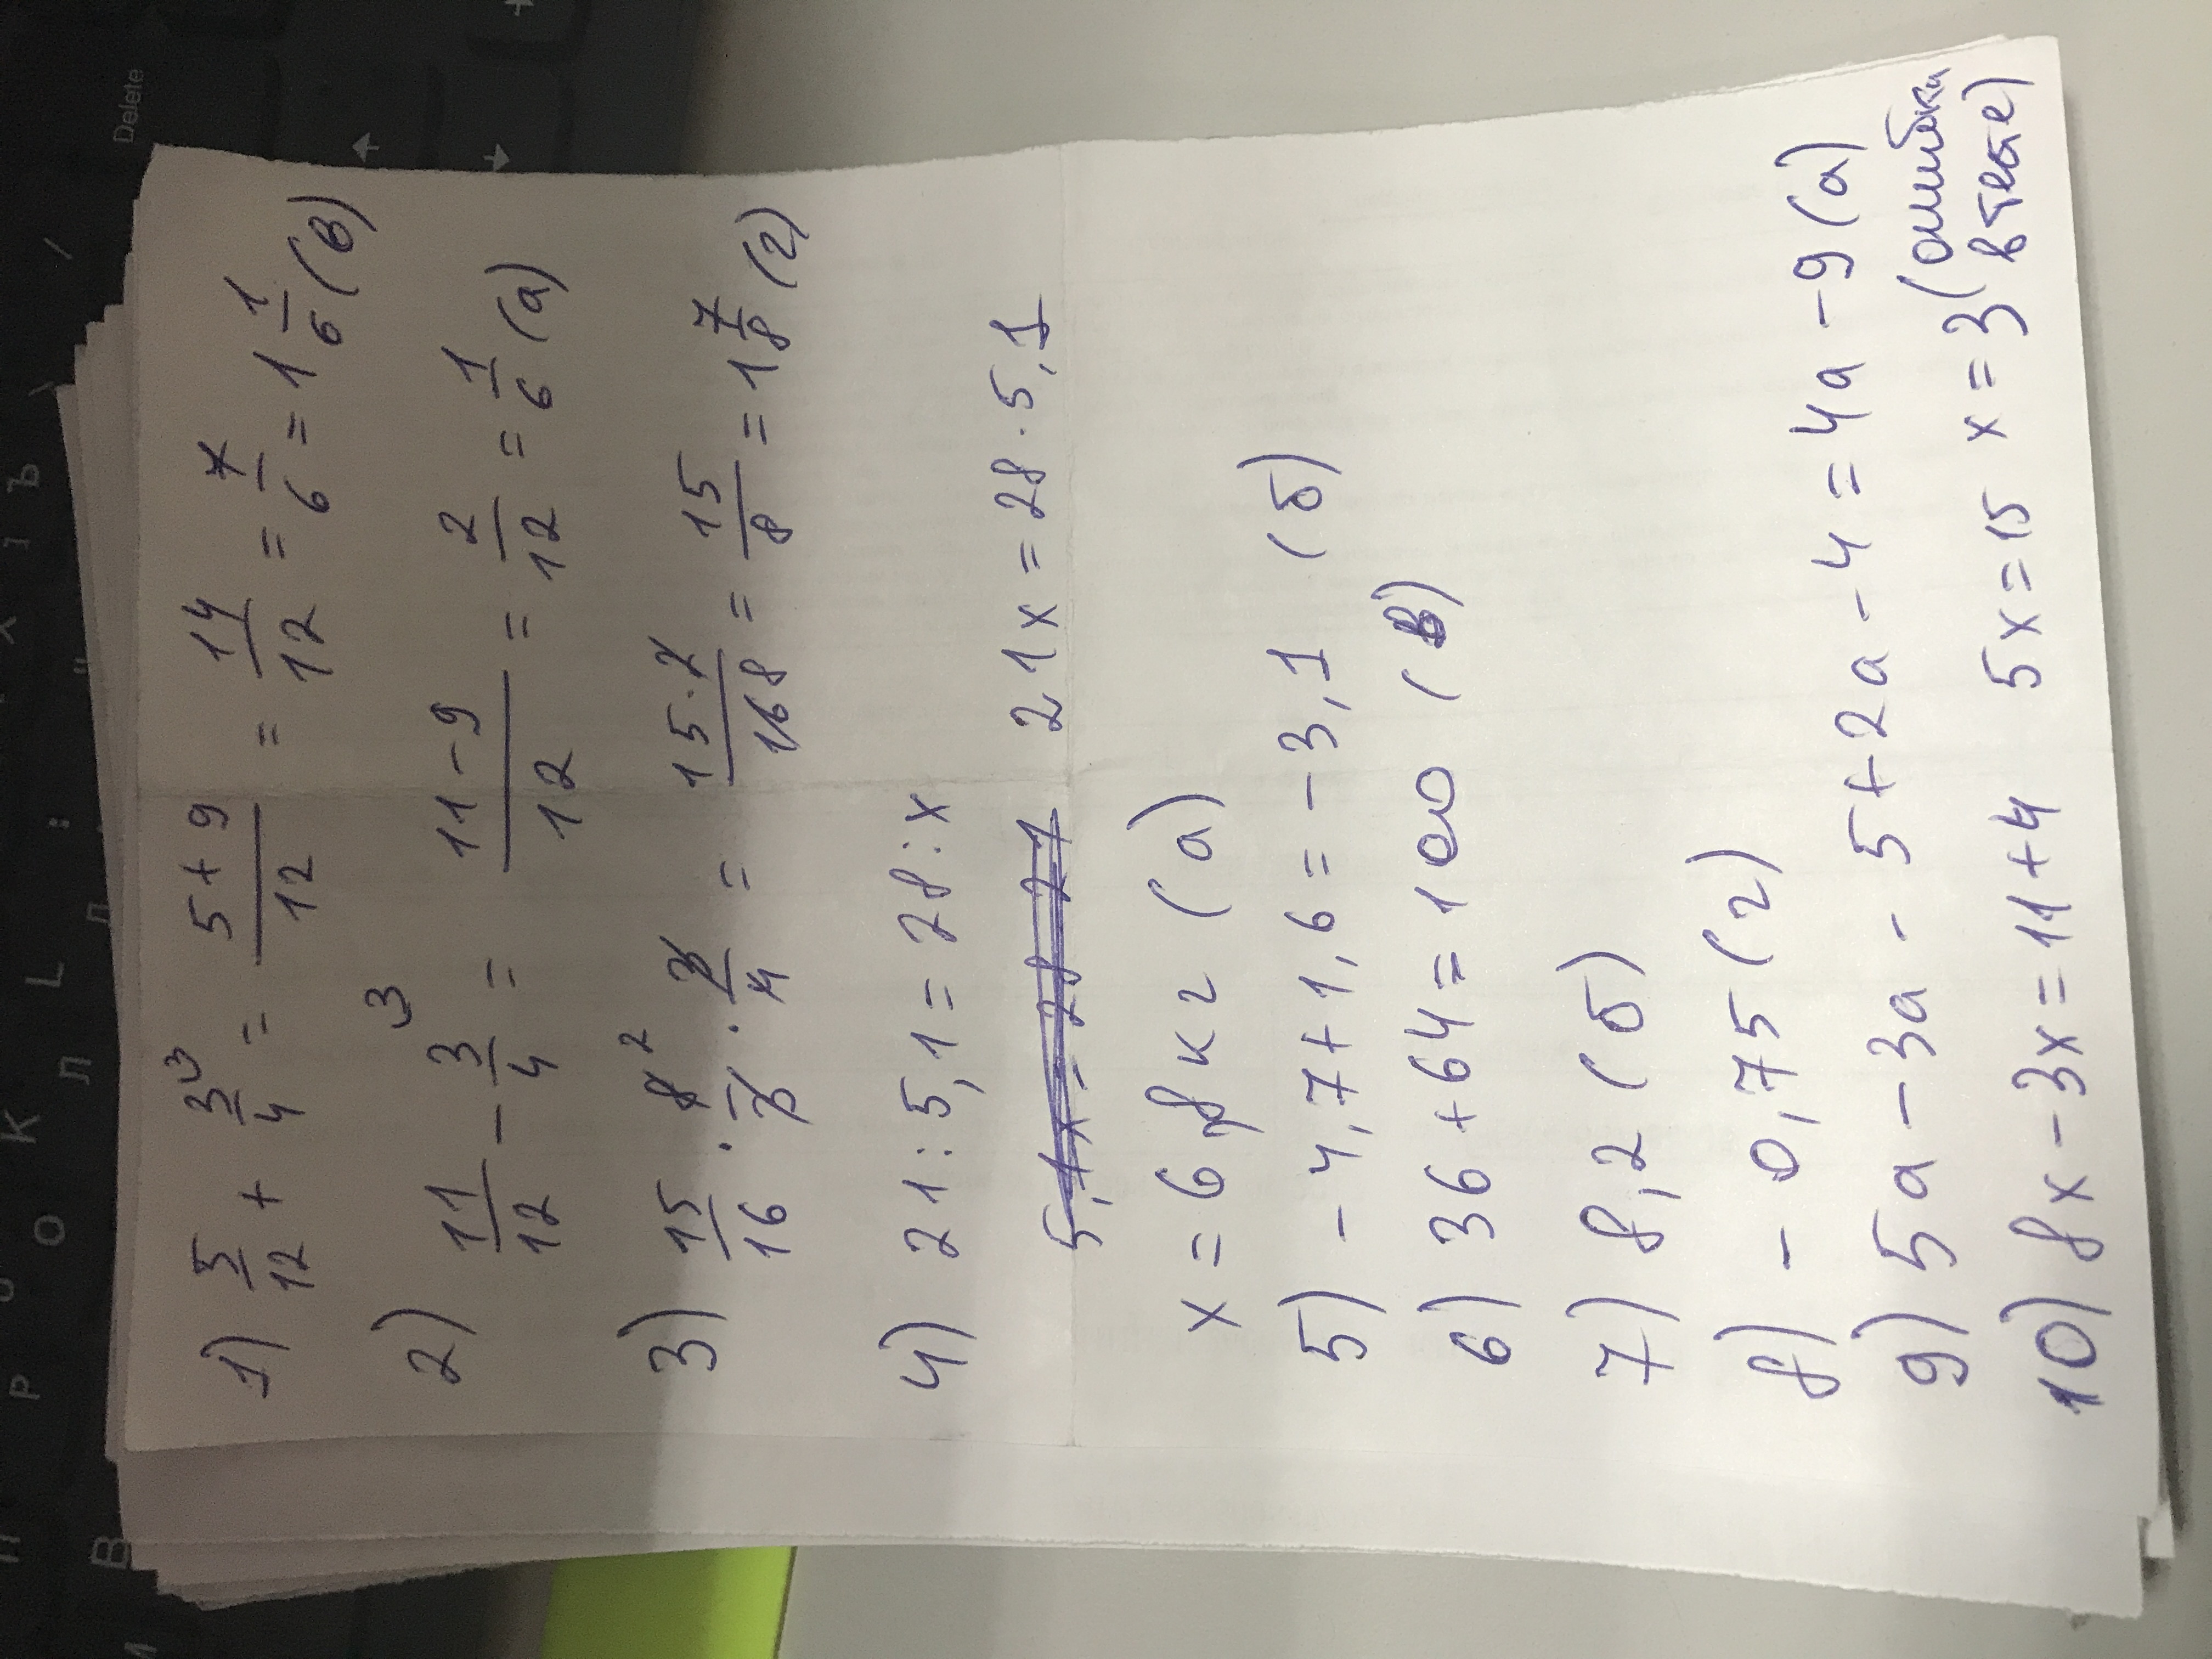 1) 5/12 + 3/4 ³ = 5+9/12 = 14/12 = 7/6 = 1 1/6 (в)
2) 11/12 - 3/4 ³ = 11-9/12 = 2/12 = 1/6 (а)
3) 15/16 · 8 2/3 · 3/4 = 15·2/16 8 = 15/8 = 1 7/8 (г)
4) 21 : 5,1 = 28 : x
21x = 28 · 5,1
x = 6,8 кг (а)
5) -4,7+1,6 = -3,1 (б)
6) 36+64 = 100 (в)
7) 8,2 (б)
8) -0,75 (г)
9) 5a - 3a - 5 + 2a - 4 = 4a - 9 (а)
10) 8x - 3x = 11+4 5x = 15 x = 3 (ошибка
в тесте)
Delete